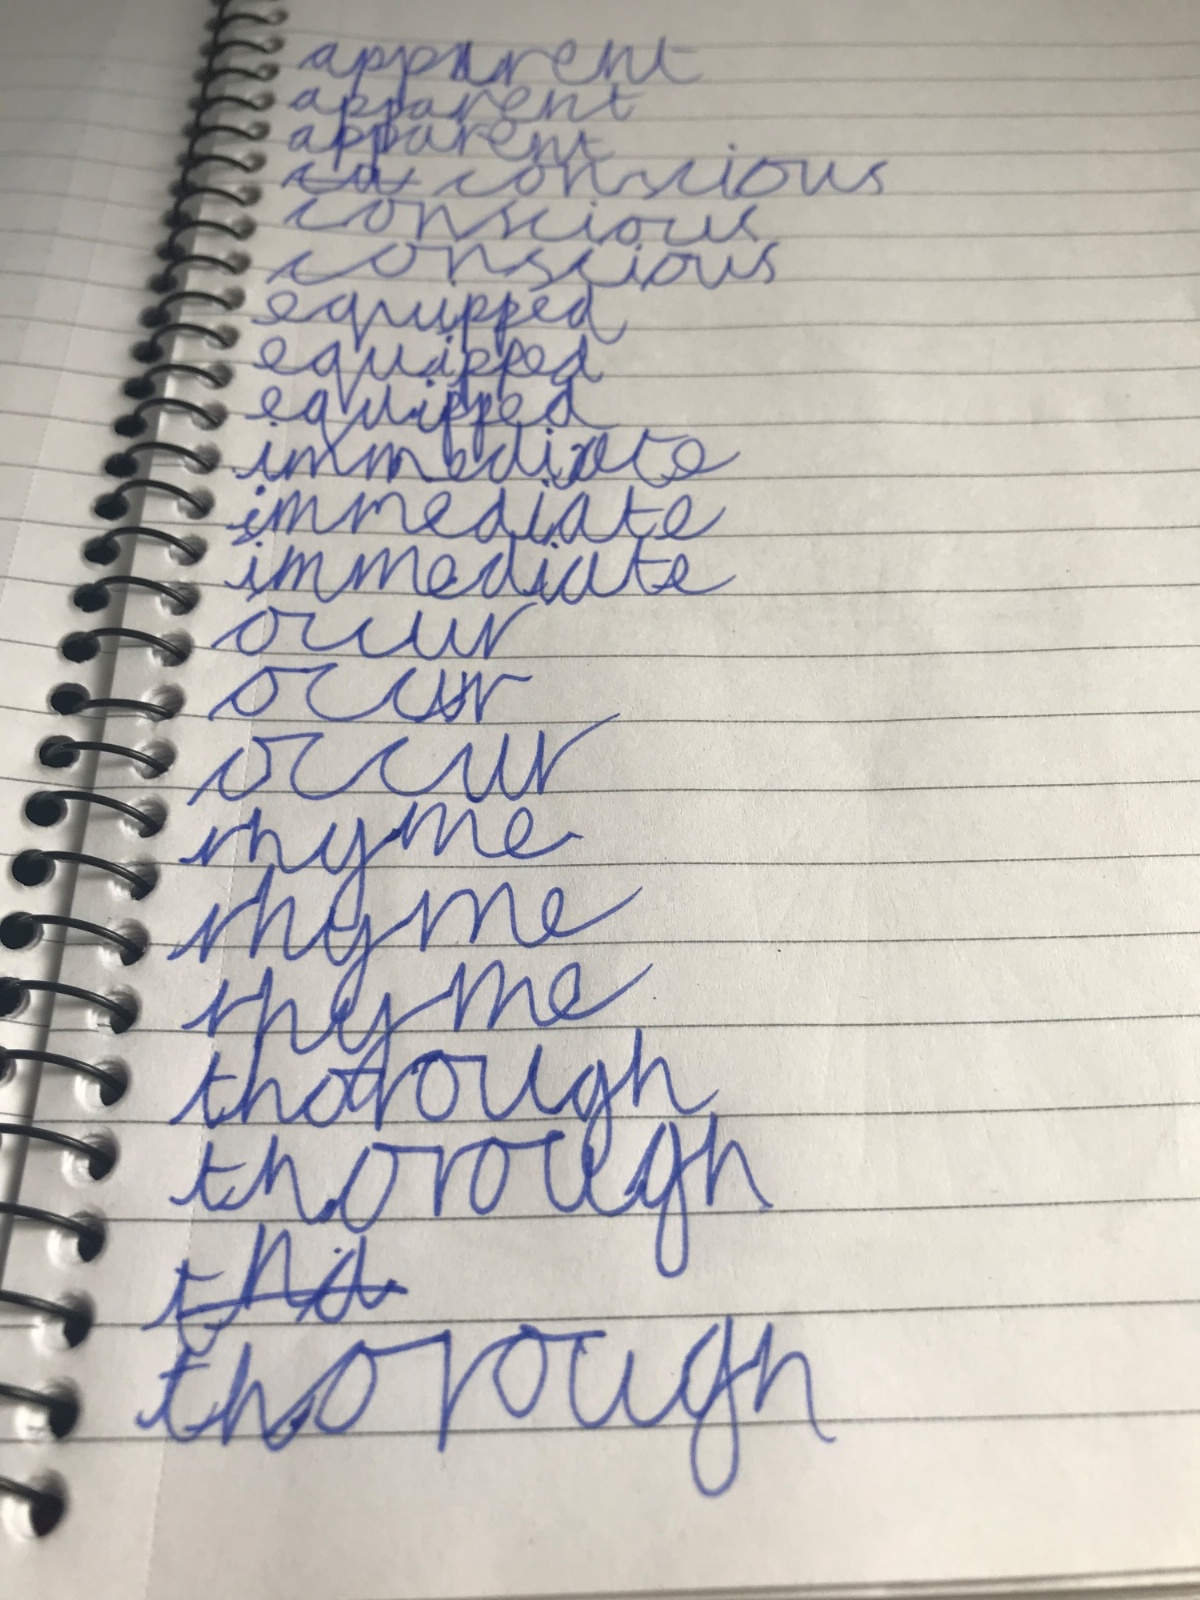 apparent
apparent
apparent
conscious
conscious
conscious
equipped
equipped
equipped
immediate
immediate
immediate
occur
occur
occur
rhyme
rhyme
rhyme
thorough
thorough
tho
thorough